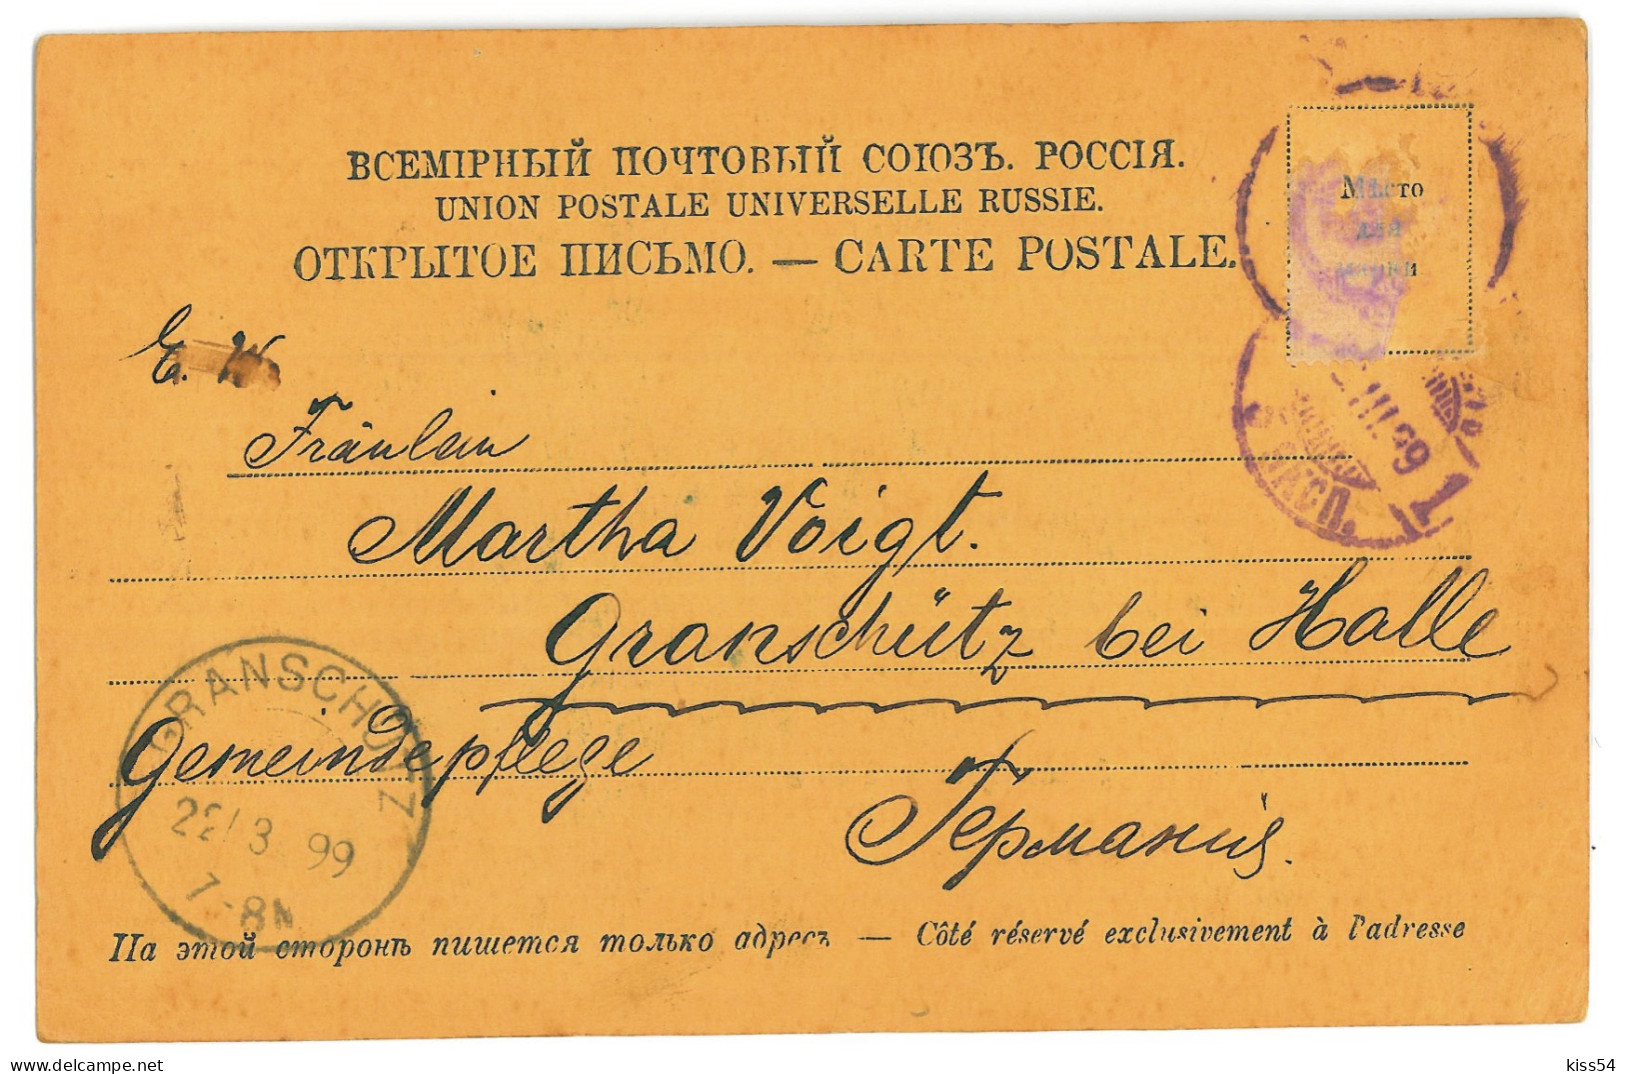 ВСЕМІРНЫЙ ПОЧТОВЫЙ СОЮЗЪ. РОССІЯ.
UNION POSTALE UNIVERSELLE RUSSIE.
ОТКРЫТОЕ ПИСЬМО. — CARTE POSTALE.
Мѣсто
для
марки
E. W.
Fräulein
Martha Voigt.
Granschütz bei Halle
Gemeindepflege
Германія.
GRANSCHÜTZ
22/3 99
7-8N
III.99
1
На этой сторонѣ пишется только адресъ — Côté réservé exclusivement à l'adresse
kiss54
delcampe.net